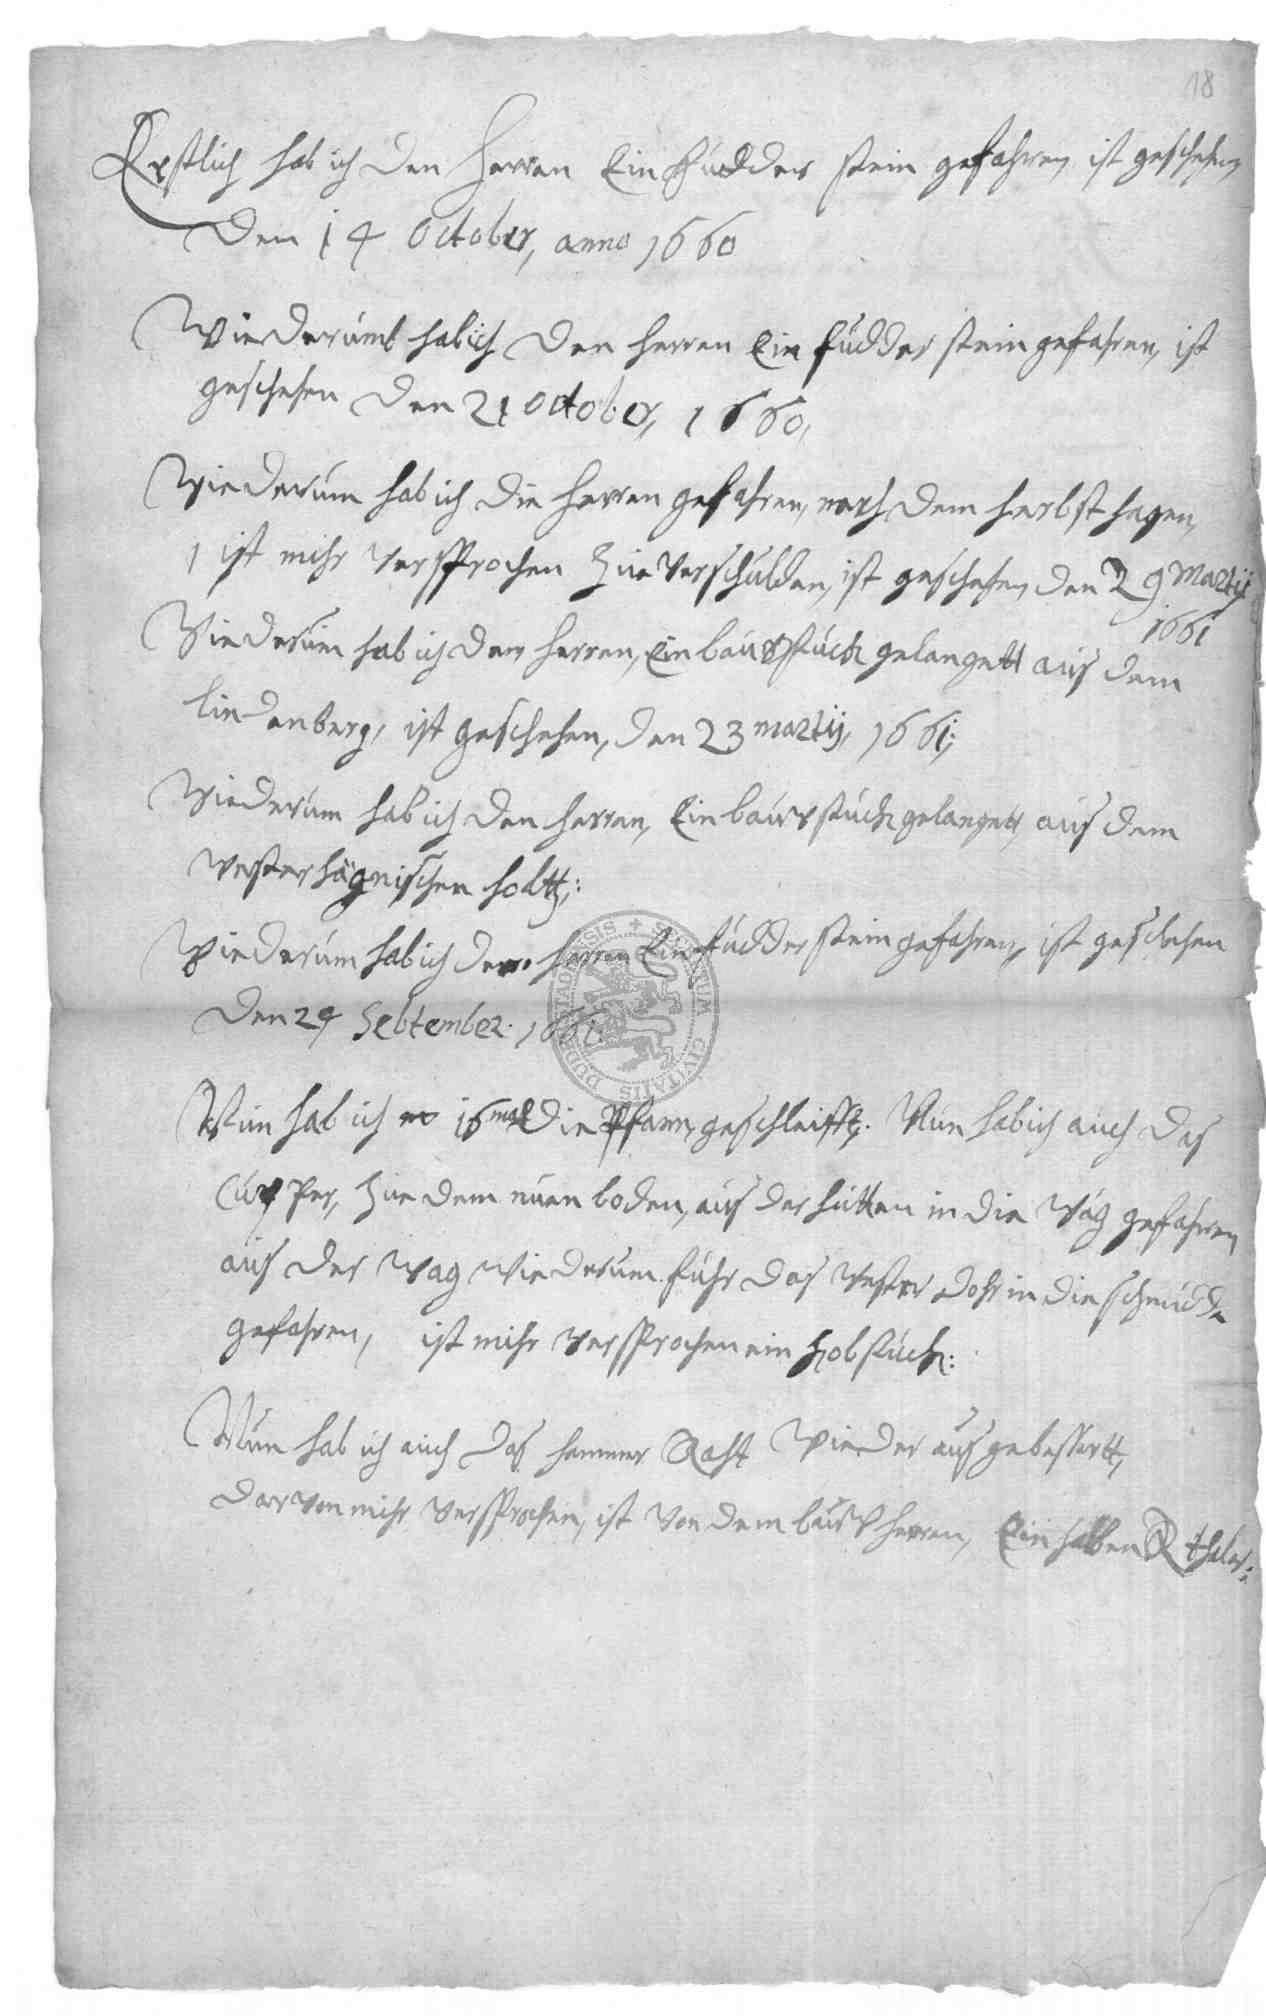 18
Erstlich hab ich den Herren Ein fudder stein gefahren ist geschehen
den 14 October, anno 1660
Wiederumb hab ich den herren Ein fudder stein gefahren, ist
geschehen den 21 October, 1660,
Wiederum hab ich die herren gefahren, nach dem herbst hagen,
ist mihr versprochen zue verschulden, ist geschehen den 29 Martij
1661
Wiederum hab ich den herren, Ein bauwstuck gelangett aus dem
lindenberg, ist geschehen, den 23 martij, 1661;
Wiederum hab ich den herren, Ein bauwstuck gelangett, aus dem
westerhägnischen holtz;
Wiederum hab ich den herren Ein fudder stein gefahren, ist geschehen
den 29 Sebtember. 1661.
SECRETUM CIVITATIS DUDERSTADENSIS
Nun hab ich 16 mal die Pfann geschleifft. Nun hab ich auch das
Cupffer, zue dem nuen boden, aus der hütten in die wag gefahren
aus der wag wiederum fuhr das wester dohr in die schmidde
gefahren, ist mihr versprochen ein kobstuck:
Nun hab ich auch das hammer Raht wieder ausgebessertt,
darvon mihr versprochen, ist von dem bauw herren, Ein halben R thaler: